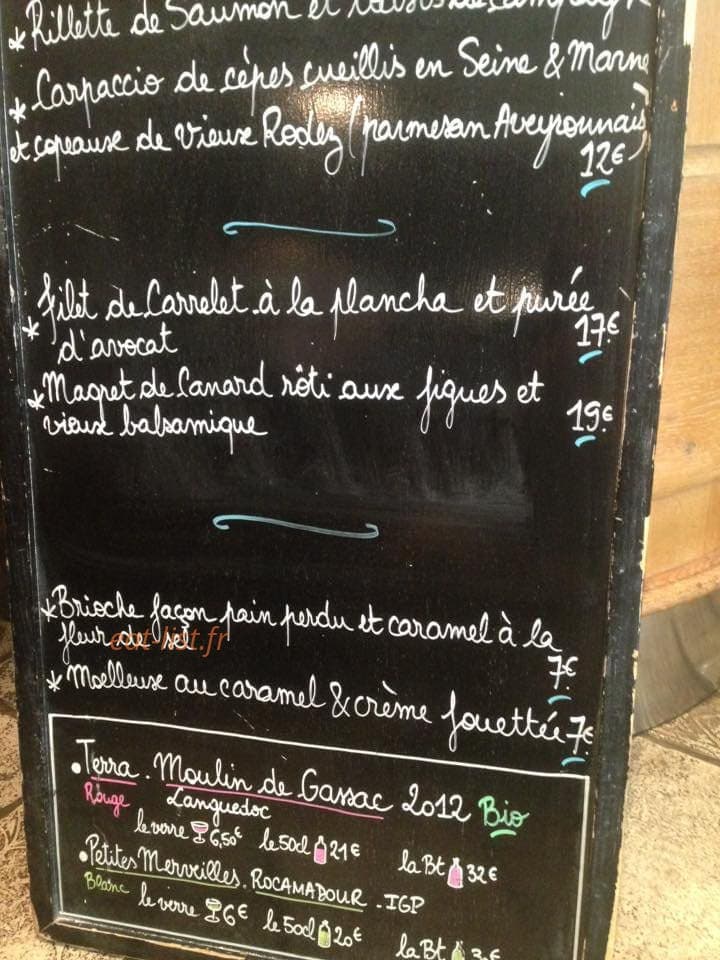 *Rillette de Saumon et
*Carpaccio de cèpes cueillis en Seine & Marne
et copeaux de vieux Rodez (parmesan Aveyronnais)
12€
*Filet de Carrelet à la plancha et purée
d'avocat
17€
*Magret de Canard rôti aux figues et
vieux balsamique
19€
*Brioche façon pain perdu et caramel à la
fleur de sel
eat-list.fr
7€
*Moelleux au caramel & crème fouettée 7€
• Terra. Moulin de Gassac 2012 Bio
Rouge Languedoc
le verre 6,50€ le 50cl 21€ la Bt 32€
• Petites Merveilles. ROCAMADOUR - IGP
Blanc le verre 6€ le 50cl 20€ la Bt